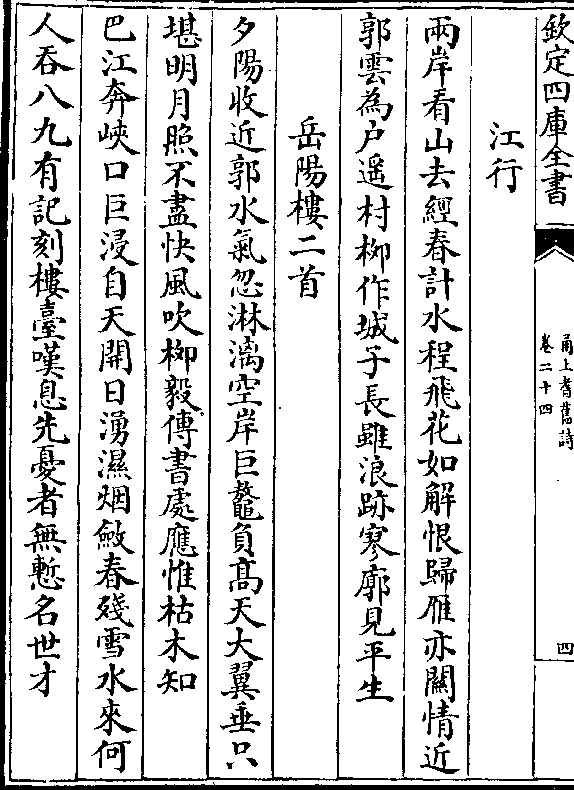 欽定四庫全書
甬上耆舊詩
卷二十四
四
江行
兩岸看山去經春計水程飛花如解恨歸雁亦關情近
郭雲為户遥村栁作城子長雖浪跡寥廓見平生
岳陽樓二首
夕陽收近郭水氣忽淋漓空岸巨鼇負髙天大翼垂只
堪明月照不盡快風吹栁毅傳書處應惟枯木知
巴江奔峽口巨浸自天開日湧濕烟斂春殘雪水來何
人吞八九有記刻樓臺嘆息先憂者無慙名世才